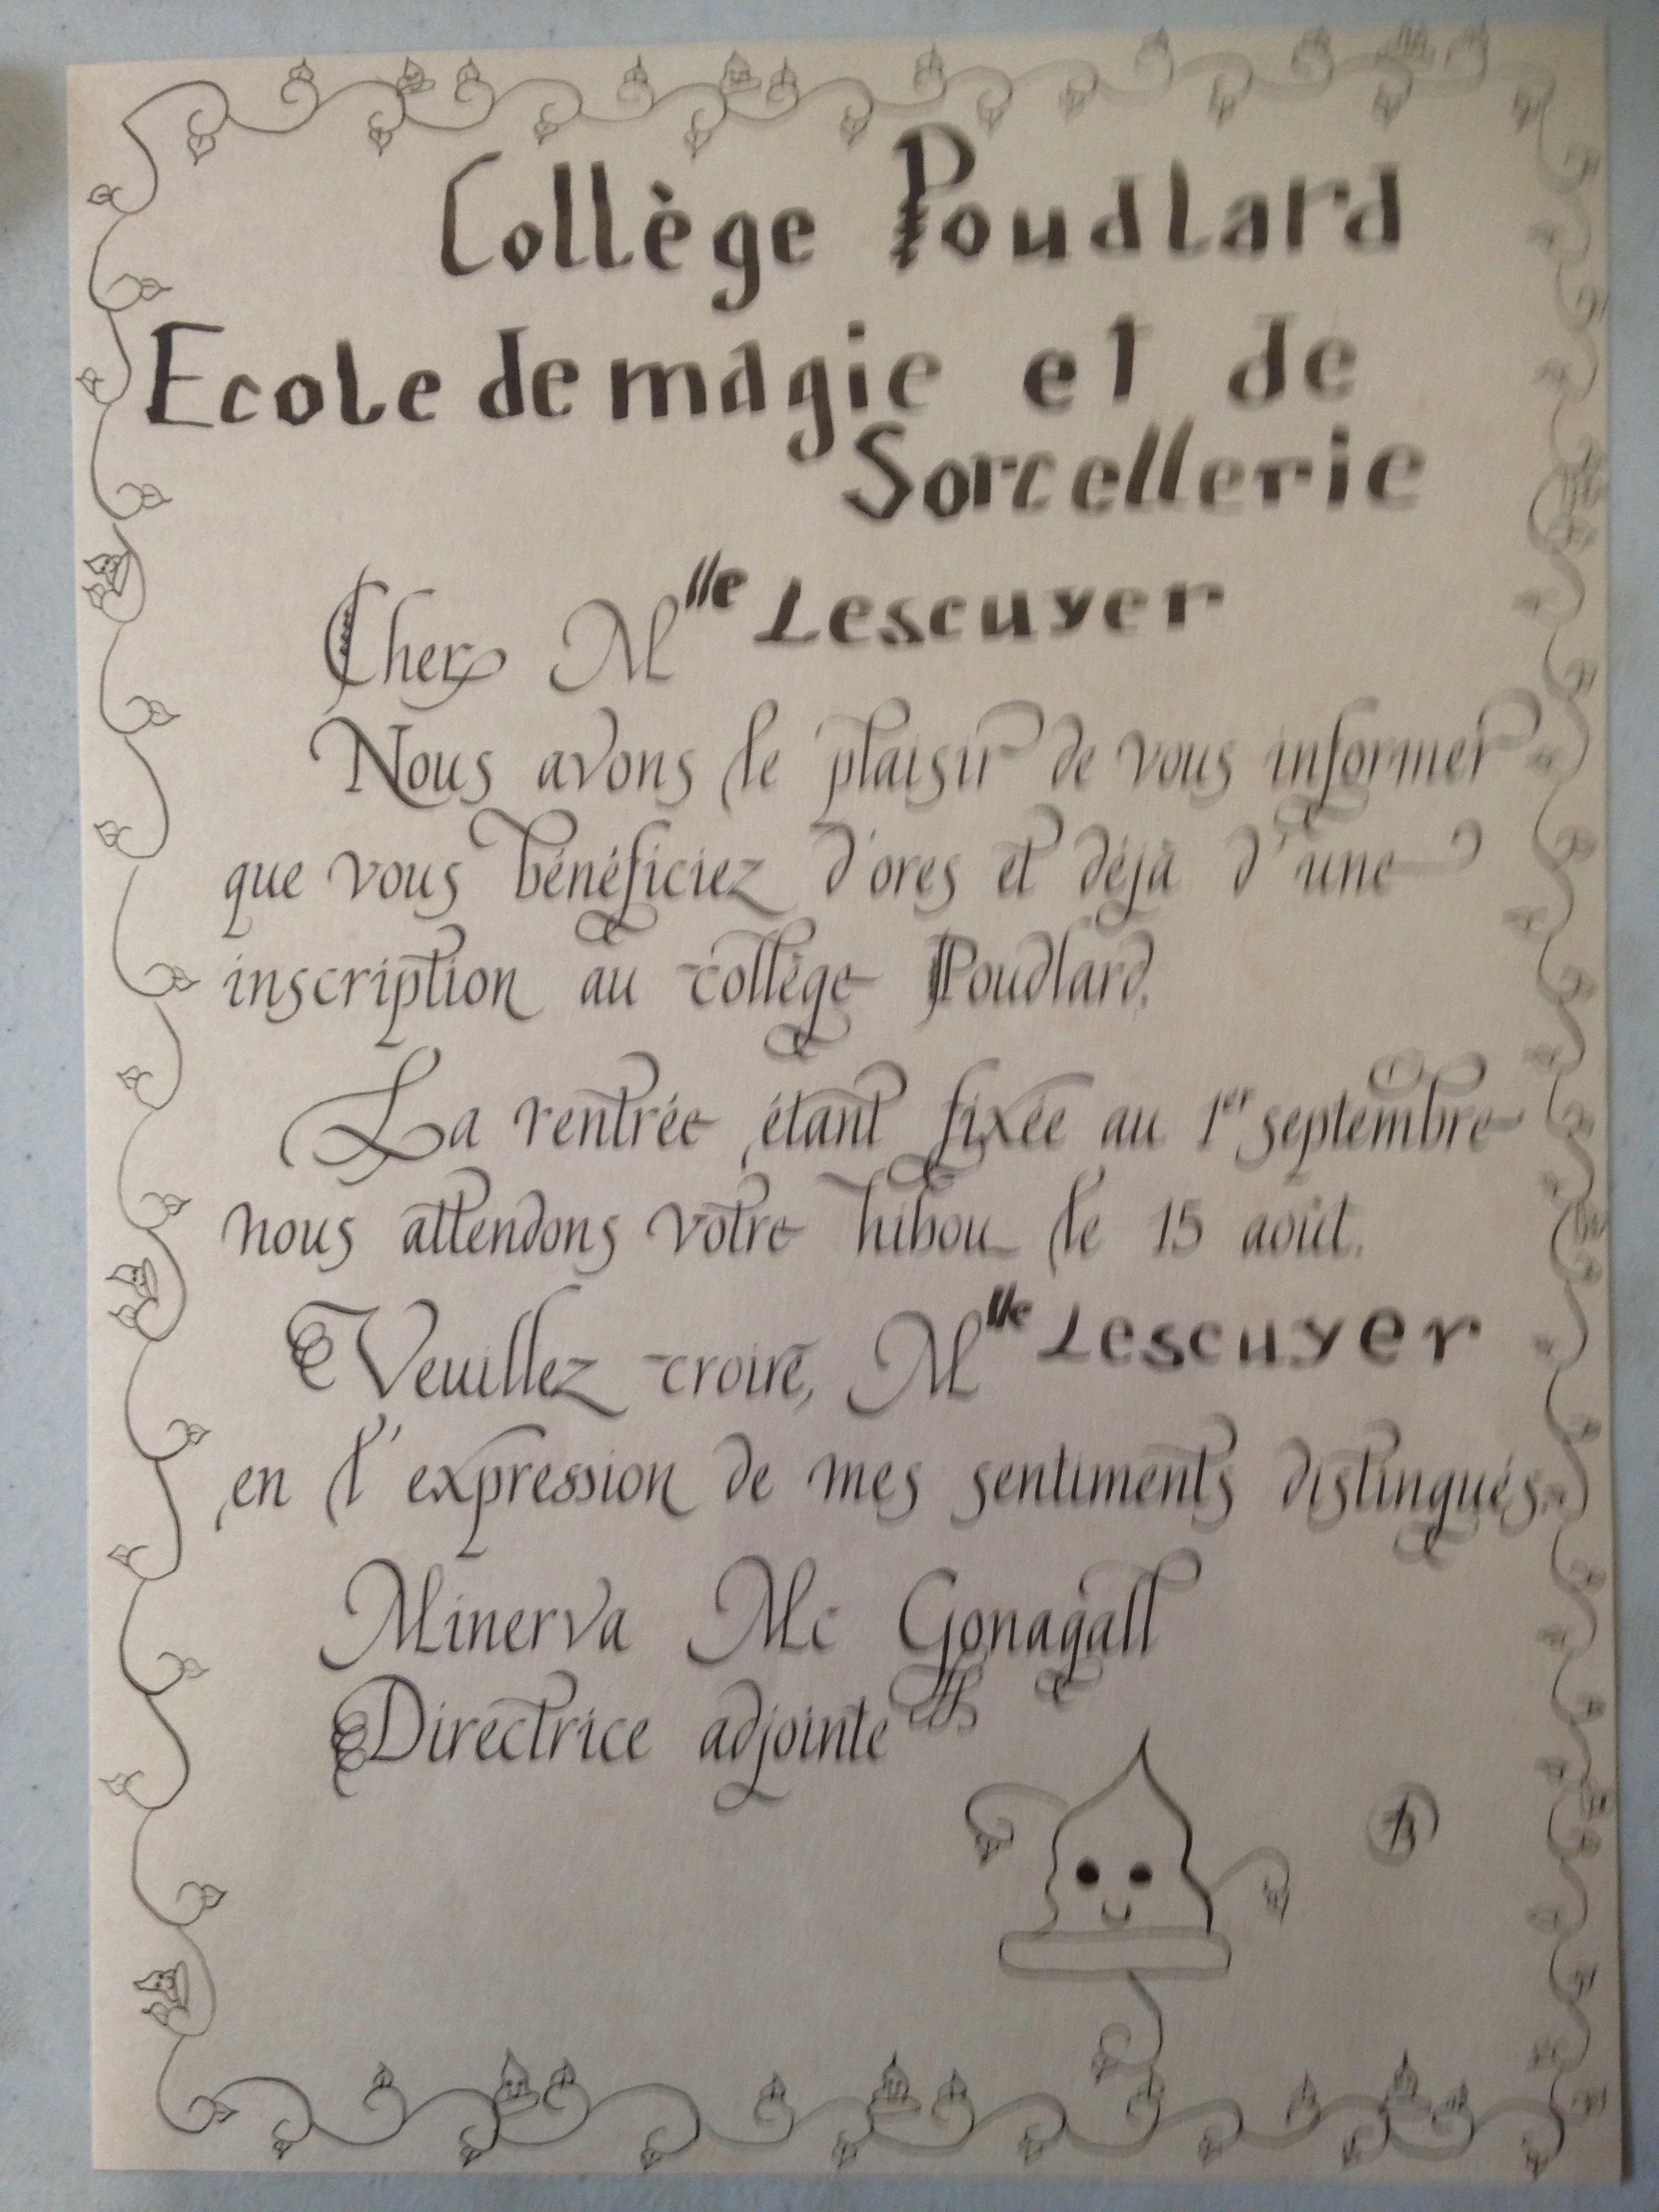 Collège Poudlard
Ecole de magie et de
Sorcellerie
Cher Mlle Lescuyer
Nous avons le plaisir de vous informer
que vous bénéficiez d'ores et déjà d'une
inscription au collège Poudlard.
La rentrée étant fixée au 1er septembre
nous attendons votre hibou le 15 août.
Veuillez croire, Mlle Lescuyer
en l'expression de mes sentiments distingués.
Minerva Mc Gonagall
Directrice adjointe